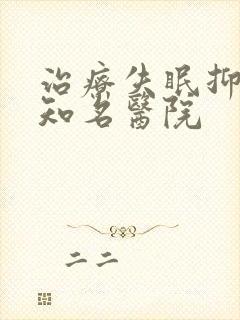 治療失眠抑
知名醫院
二二